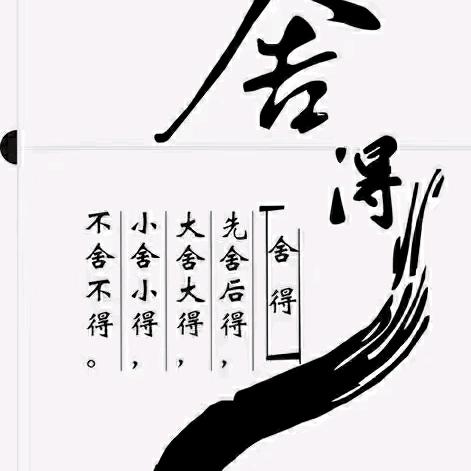 舍
得
舍得
先舍后得，
大舍大得，
小舍小得，
不舍不得。